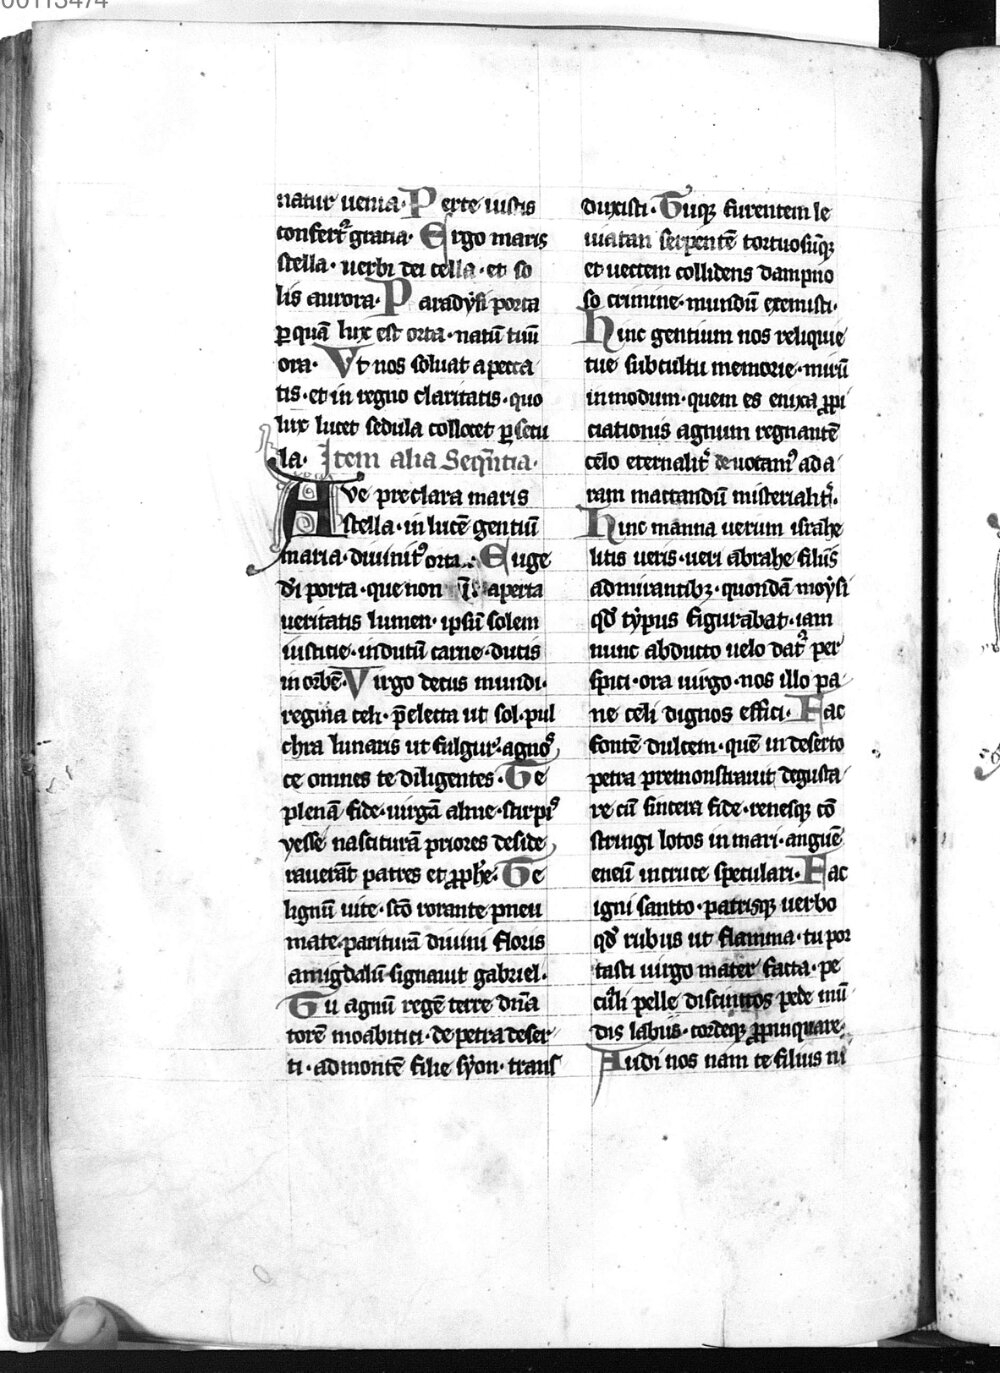 00113474
natur uenia· Per te iustis
confert᷑ gratia· Ergo maris
stella· uerbi dei cella· et so
lis aurora· Paradẏsi porta
ꝑ quā lux est orta· natū tuū
ora· Vt nos soluat a pecca
tis· et in regno claritatis· quo
lux lucet sedula collocet ꝑ secu
la· Item alia Seqn̄tia·
Ave preclara maris
stella· in lucē gentiū
maria· diuinitꝰ orta· Euge
dī porta· que non aperta
ueritatis lumen· ipsū solem
iusticie· indutū carne· ducis
in orbē· Virgo decus mundi·
regina celi· p̄electa ut sol· pul
chra lunaris ut fulgur· agnoſ
ce omnes te diligentes· Te
plenā fide· uirgā alme· stirpiꝰ
yesse nasciturā priores deside
rauerāt patres et ꝓph̄e· Te
lignū uite· sc̄o rorante pneu
mate· pariturā diuini floris
amigdalū signauit gabriel·
Tu agnū regē terre dn̄a
torē moabitici· de petra deser
ti· ad montē filie sẏon· trans
duxisti· Tuqꝫ furentem le
uiatan serpentē tortuosūqꝫ
et uectem collidens dampno
so crimine· mundū exemisti·
Hinc gentium nos reliquie
tue sub cultu memorie· mirū
in modum· quem es enixa ꝓpi
ciationis agnum regnantē
celo eternalit᷑ deuotamꝰ ad a
ram mactandū misterialit᷑·
Hinc manna uerum israhe
litis ueris· ueri abrahe filiis
admirantibꝫ· quondā moẏsi
qd̄ tẏpus figurabat· iam
nunc abducto uelo dat᷑ per
spici· ora uirgo· nos illo pa
ne celi dignos effici· Fac
fontē dulcem· quē in deserto
petra premonstrauit degusta
re cū sincera fide· renesqꝫ cō
stringi lotos in mari· anguē
eneū in cruce speculari· Fac
igni sancto· patrisqꝫ uerbo
qd̄ rubus ut flamma· tu por
tasti uirgo mater facta· pe
cūli pelle discinctos pede mū
dis labiis· cordeqꝫ ꝓpinquare·
Audi nos nam te filius ni